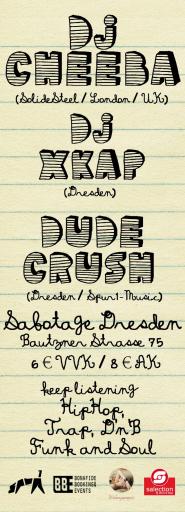 DJ
CHEEBA
(SolideSteel / London / UK)
DJ
XKAP
(Dresden)
DUDE
CRUSH
(Dresden / Spur1-Music)
Sabotage Dresden
Bautzner Strasse 75
6 € VVK / 8 € AK
keep listening
HipHop,
Trap, DnB
Funk and Soul
BB
BONAFIDE
BOOKING&
EVENTS
selection